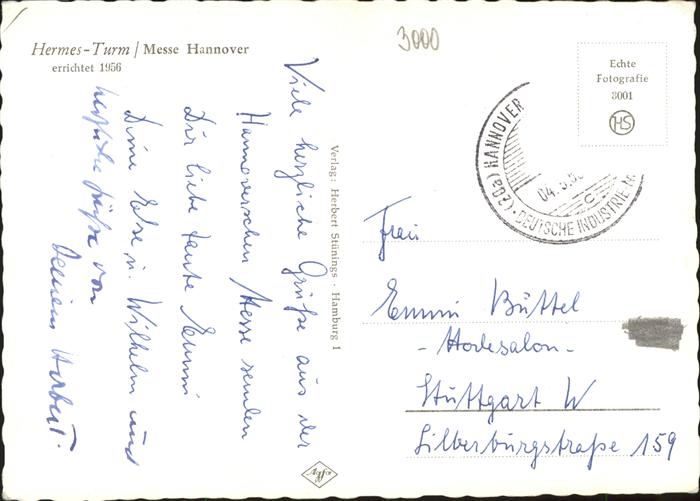 Hermes-Turm / Messe Hannover
errichtet 1956
3000
Echte
Fotografie
8001
HS
(20a) HANNOVER
04.5.5
C
DEUTSCHE INDUSTRIE-M
Viele herzliche Grüße aus der
Hannoverschen Messe senden
Dir liebe Tante Emmi
Deine Else u. Wilhelm und
herzliche Grüße von
Deinem Herbert.
Verlag: Herbert Stünings · Hamburg 1
Frau
Emmi Büttel
- Modesalon -
Stuttgart W
Silberburgstraße 159
Agfa